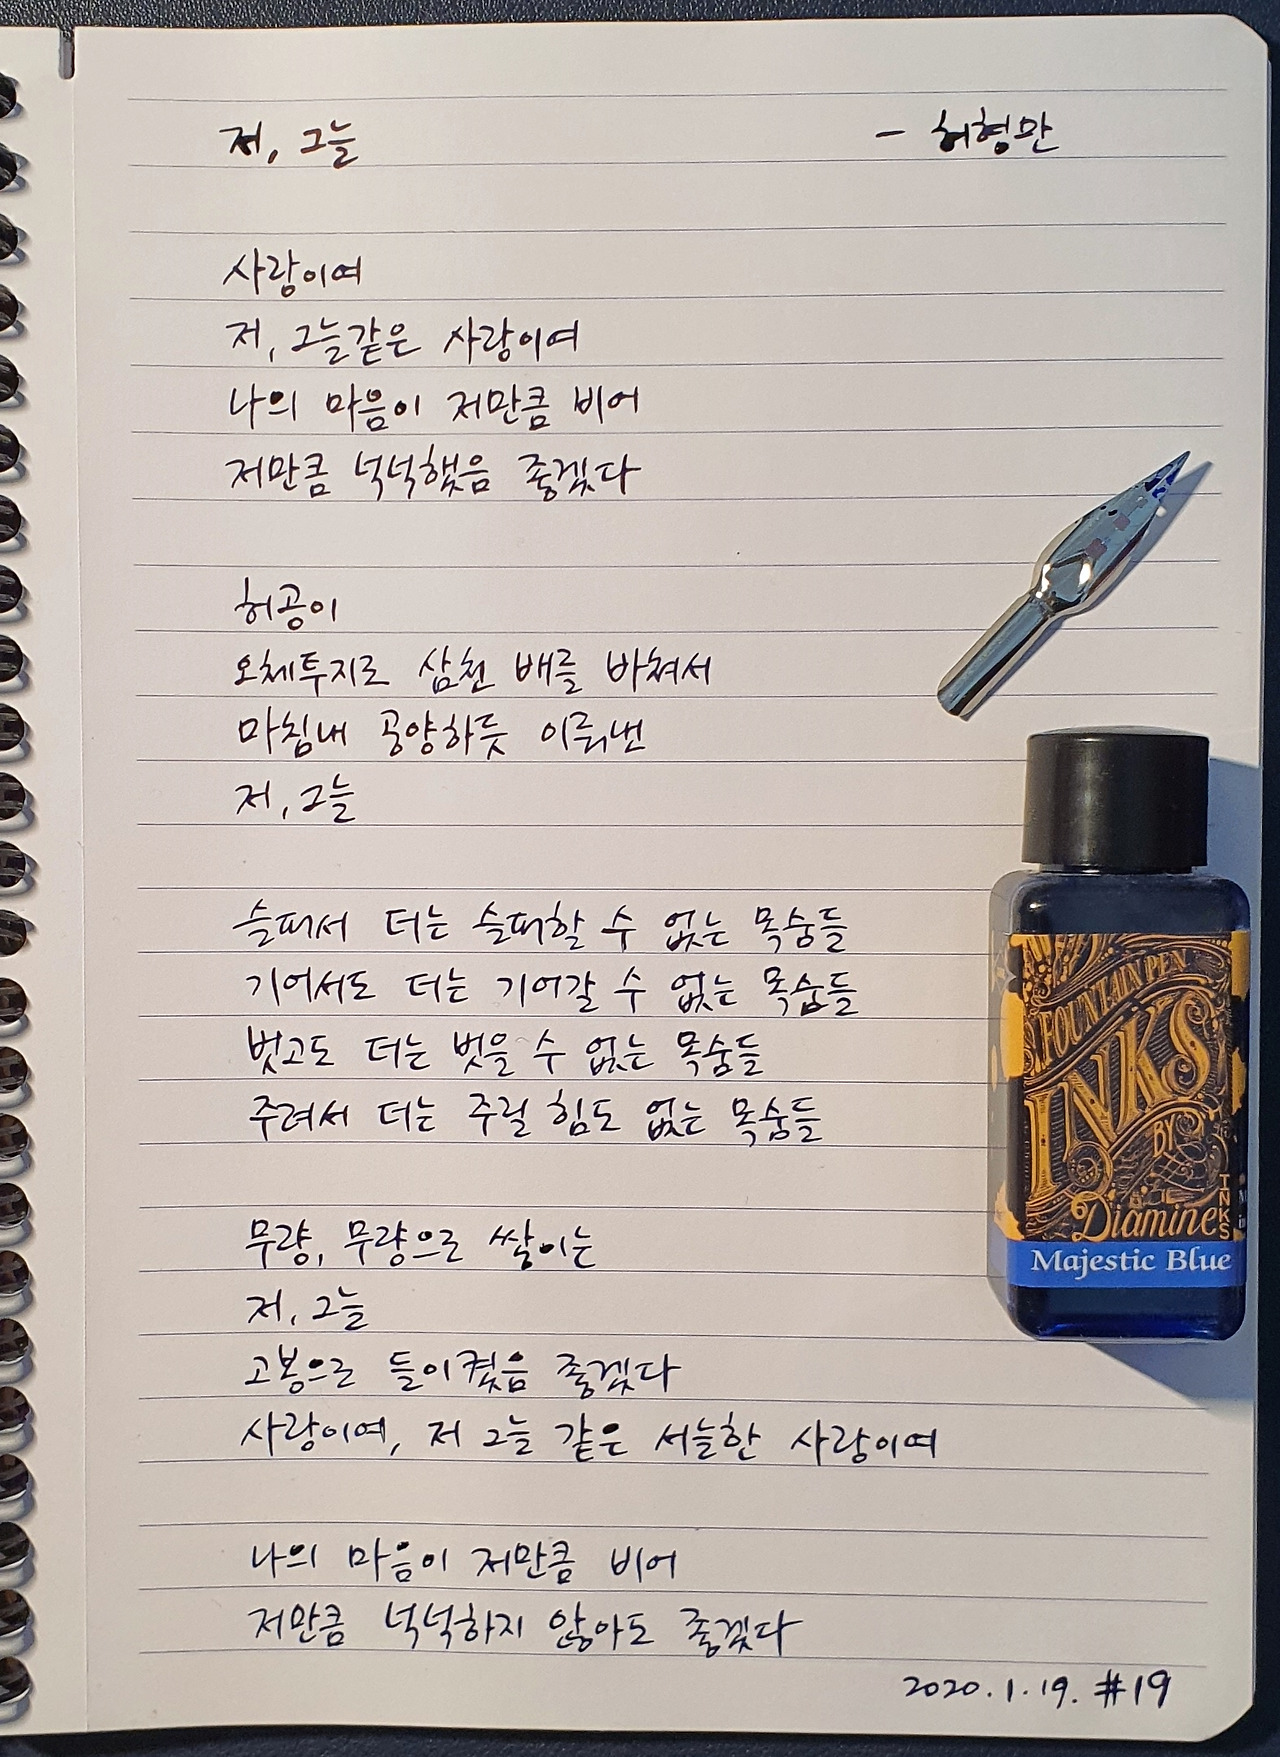 저, 그늘 - 허형만
사랑이여
저, 그늘같은 사랑이여
나의 마음이 저만큼 비어
저만큼 넉넉했음 좋겠다
허공이
오체투지로 삼천 배를 바쳐서
마침내 공양하듯 이뤄낸
저, 그늘
슬퍼서 더는 슬퍼할 수 없는 목숨들
기어서도 더는 기어갈 수 없는 목숨들
벗고도 더는 벗을 수 없는 목숨들
주려서 더는 주릴 힘도 없는 목숨들
무량, 무량으로 쌓이는
저, 그늘
고봉으로 들이켰음 좋겠다
사랑이여, 저 그늘 같은 서늘한 사랑이여
나의 마음이 저만큼 비어
저만큼 넉넉하지 않아도 좋겠다
2020. 1. 19. #19
FOUNTAIN PEN
INKS
BY
Diamine
INKS
Majestic Blue